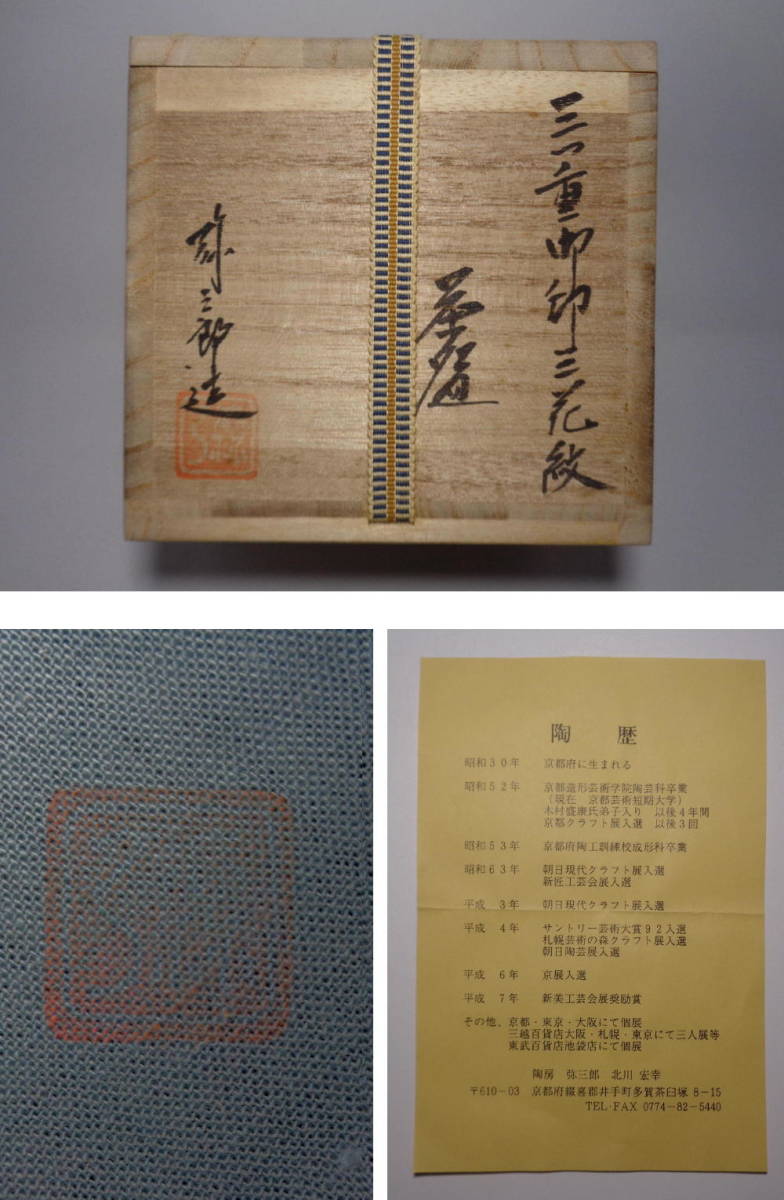 三重御印三花紋
茶盌
弥三郎造
陶 歴
昭和30年 京都府に生まれる
昭和52年 京都造形芸術学院陶芸科卒業
(現在 京都芸術短期大学)
木村盛康氏弟子入り 以後4年間
京都クラフト展入選 以後3回
昭和53年 京都府陶工訓練校成形科卒業
昭和63年 朝日現代クラフト展入選
新匠工芸会展入選
平成 3年 朝日現代クラフト展入選
平成 4年 サントリー芸術大賞92入選
札幌芸術の森クラフト展入選
朝日陶芸展入選
平成 6年 京展入選
平成 7年 新美工芸会展奨励賞
その他、京都・東京・大阪にて個展
三越百貨店大阪・札幌・東京にて三人展等
東武百貨店池袋店にて個展
陶房 弥三郎 北川 宏幸
〒610-03 京都府綴喜郡井手町多賀茶臼塚 8-15
TEL・FAX 0774-82-5440